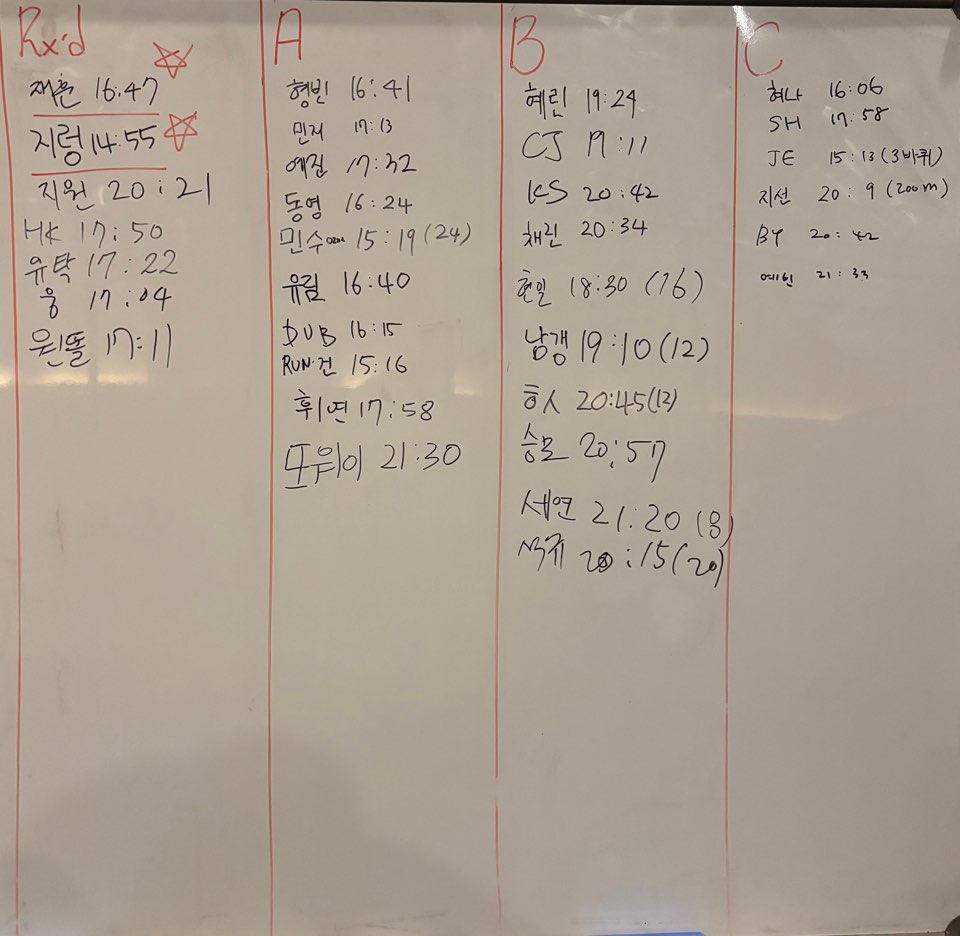 Rx'd
재훈 16:47
지렁 14:55
지원 20:21
HK 17:50
유탁 17:22
웅 17:04
원똘 17:11
A
형빈 16:41
민지 17:13
예진 17:32
동영 16:24
민수 15:19 (24)
유림 16:40
DUB 16:15
RUN·건 15:16
휘연 17:58
또워이 21:30
B
혜린 19:24
CJ 19:11
KS 20:42
채린 20:34
현일 18:30 (16)
남갱 19:10 (12)
20:45 (12)
승모 20:57
세연 21:20 (8)
20:15 (20)
C
혜나 16:06
SH 17:58
JE 15:13 (3바퀴)
지선 20:9 (200m)
BY 20:42
예빈 21:33